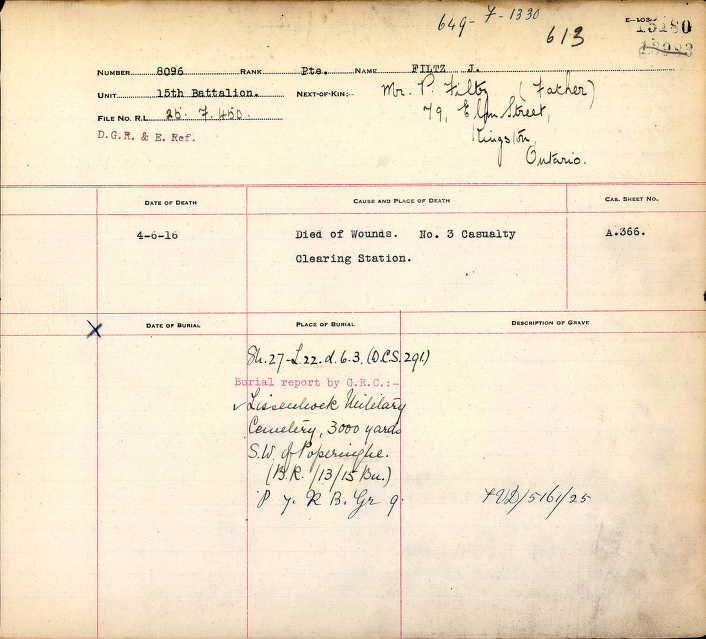 649-7-1330
613
E-103
15180
NUMBER 8096 RANK Pte. NAME FILTZ J.
UNIT 15th Battalion. NEXT-OF-KIN:- Mr. P. Filtz (Father)
79, Elm Street,
FILE NO. R.L. 25. 7. 450.
Kingston,
D.G.R. & E. Ref.
Ontario.
DATE OF DEATH CAUSE AND PLACE OF DEATH CAS. SHEET NO.
4-6-16 Died of Wounds. No. 3 Casualty A.366.
Clearing Station.
X DATE OF BURIAL PLACE OF BURIAL DESCRIPTION OF GRAVE
Sh.27-L.22.d.6.3. (D.C.S. 291)
Burial report by G.R.C.:-
Lissenhoek Military
Cemetery, 3000 yards
S.W. of Poperinghe.
(B.R. /13/15 Bn.)
P 7. R B. Gr 9. VD/5161/25